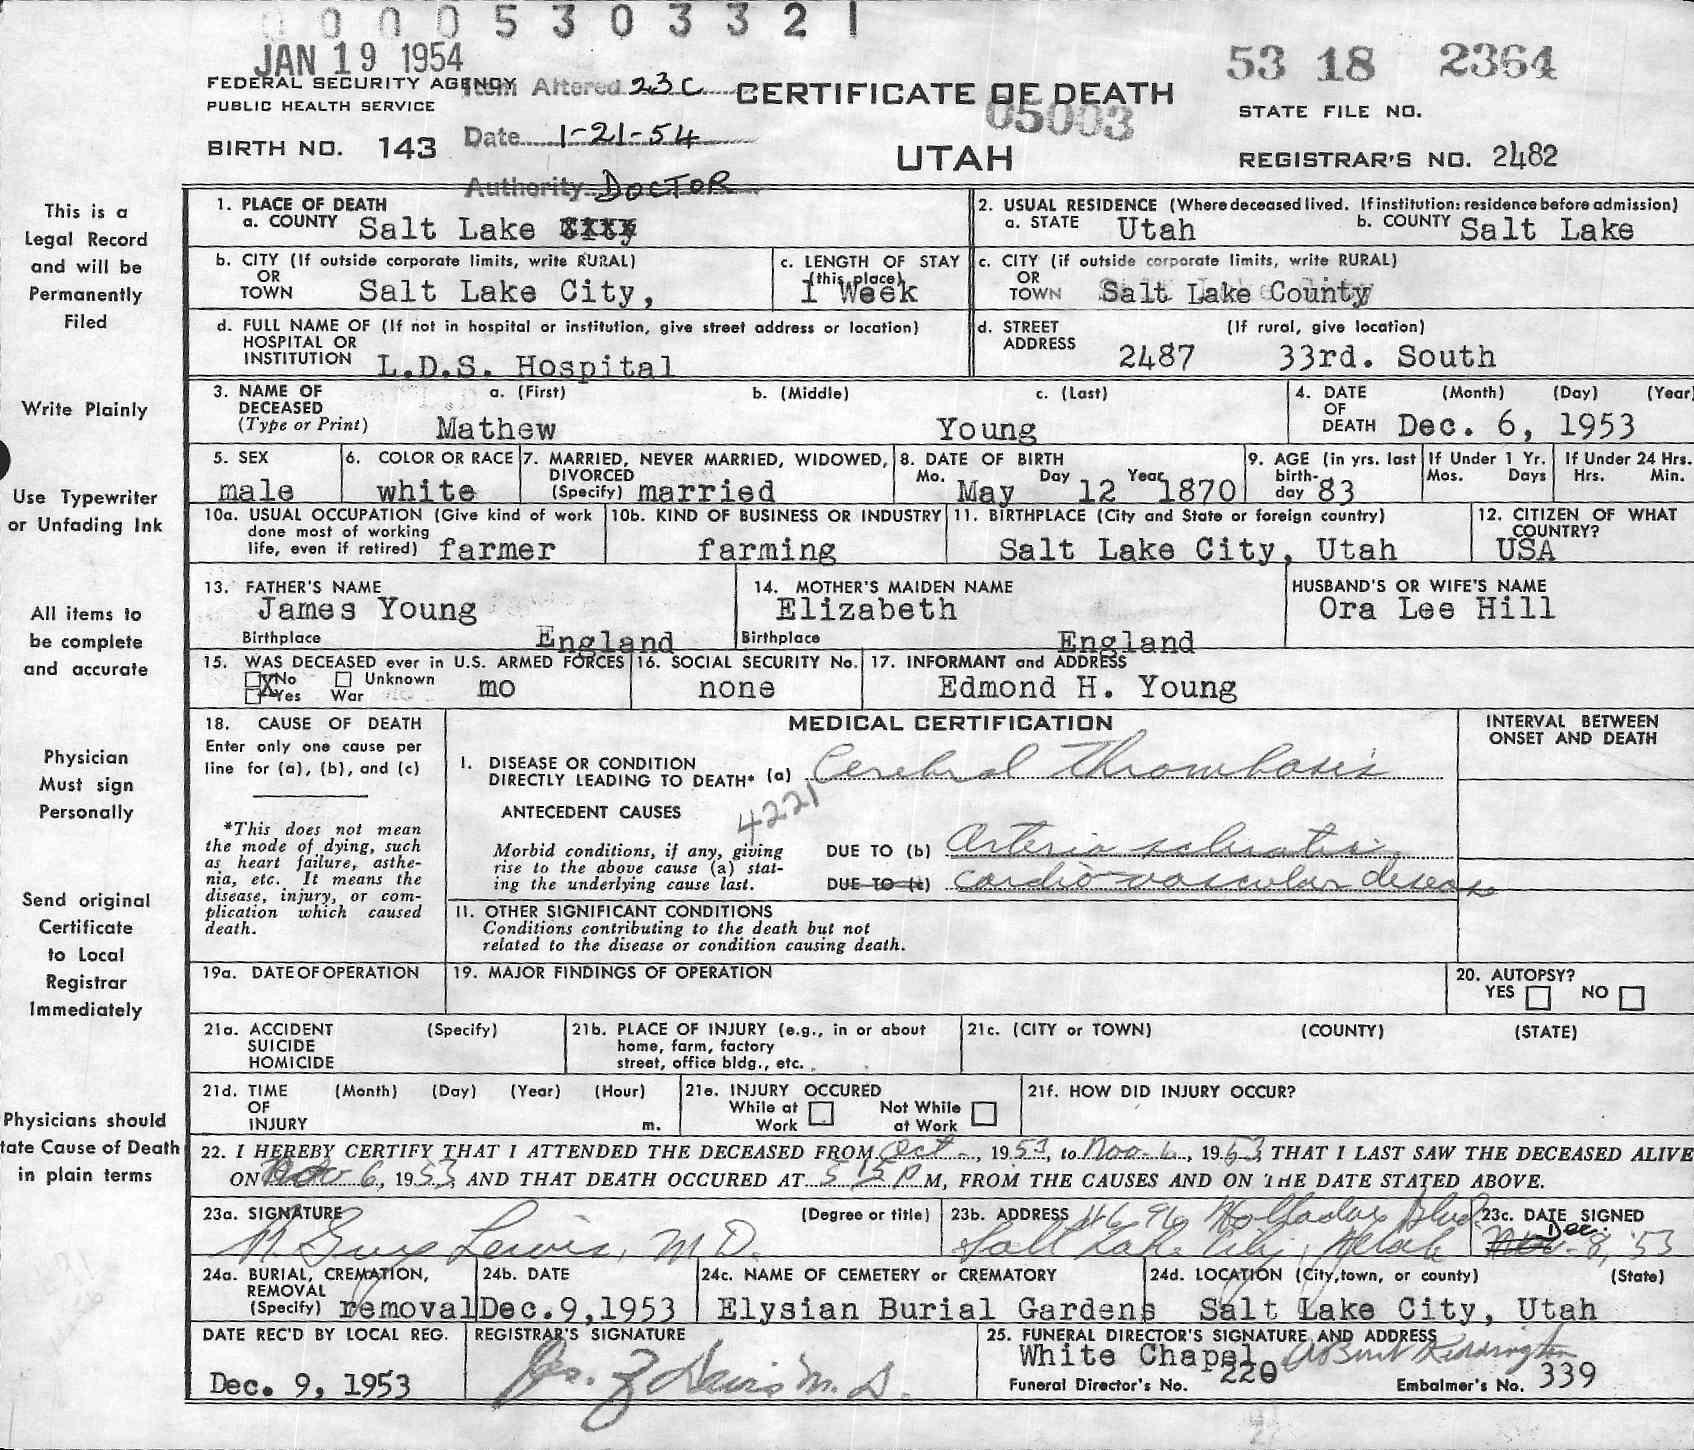 0 0 0 0 5 3 0 3 3 2 1
JAN 19 1954
53 18 2364
FEDERAL SECURITY AGENCY Item Altered 23C CERTIFICATE OF DEATH
PUBLIC HEALTH SERVICE 05003 STATE FILE NO.
BIRTH NO. 143 Date 1-21-54 UTAH REGISTRAR'S NO. 2482
Authority DOCTOR
This is a
Legal Record
and will be
Permanently
Filed
Write Plainly
Use Typewriter
or Unfading Ink
All items to
be complete
and accurate
Physician
Must sign
Personally
Send original
Certificate
to Local
Registrar
Immediately
Physicians should
tate Cause of Death
in plain terms
1. PLACE OF DEATH
a. COUNTY Salt Lake City
2. USUAL RESIDENCE (Where deceased lived. If institution: residence before admission)
a. STATE Utah b. COUNTY Salt Lake
b. CITY (If outside corporate limits, write RURAL)
OR
TOWN Salt Lake City,
c. LENGTH OF STAY
(this place)
1 Week
c. CITY (if outside corporate limits, write RURAL)
OR
TOWN Salt Lake County
d. FULL NAME OF (If not in hospital or institution, give street address or location)
HOSPITAL OR
INSTITUTION L.D.S. Hospital
d. STREET (If rural, give location)
ADDRESS 2487 33rd. South
3. NAME OF a. (First) b. (Middle) c. (Last)
DECEASED
(Type or Print) Mathew Young
4. DATE (Month) (Day) (Year)
OF
DEATH Dec. 6, 1953
5. SEX
male
6. COLOR OR RACE
white
7. MARRIED, NEVER MARRIED, WIDOWED,
DIVORCED
(Specify) married
8. DATE OF BIRTH
Mo. May Day 12 Year 1870
9. AGE (in yrs. last
birth-
day 83
If Under 1 Yr.
Mos. Days
If Under 24 Hrs.
Hrs. Min.
10a. USUAL OCCUPATION (Give kind of work
done most of working
life, even if retired) farmer
10b. KIND OF BUSINESS OR INDUSTRY
farming
11. BIRTHPLACE (City and State or foreign country)
Salt Lake City, Utah
12. CITIZEN OF WHAT
COUNTRY?
USA
13. FATHER'S NAME
James Young
Birthplace England
14. MOTHER'S MAIDEN NAME
Elizabeth
Birthplace England
HUSBAND'S OR WIFE'S NAME
Ora Lee Hill
15. WAS DECEASED ever in U.S. ARMED FORCES
X No Unknown
Yes War mo
16. SOCIAL SECURITY No.
none
17. INFORMANT and ADDRESS
Edmond H. Young
18. CAUSE OF DEATH
Enter only one cause per
line for (a), (b), and (c)
*This does not mean
the mode of dying, such
as heart failure, asthe-
nia, etc. It means the
disease, injury, or com-
plication which caused
death.
MEDICAL CERTIFICATION
INTERVAL BETWEEN
ONSET AND DEATH
I. DISEASE OR CONDITION
DIRECTLY LEADING TO DEATH* (a) Cerebral Thrombosis
ANTECEDENT CAUSES 4221
Morbid conditions, if any, giving
rise to the above cause (a) stat-
ing the underlying cause last.
DUE TO (b) Arterio sclerotic
DUE TO (c) cardio vascular disease
II. OTHER SIGNIFICANT CONDITIONS
Conditions contributing to the death but not
related to the disease or condition causing death.
19a. DATE OF OPERATION
19. MAJOR FINDINGS OF OPERATION
20. AUTOPSY?
YES NO
21a. ACCIDENT (Specify)
SUICIDE
HOMICIDE
21b. PLACE OF INJURY (e.g., in or about
home, farm, factory
street, office bldg., etc.
21c. (CITY or TOWN) (COUNTY) (STATE)
21d. TIME (Month) (Day) (Year) (Hour)
OF
INJURY m.
21e. INJURY OCCURED
While at Work Not While at Work
21f. HOW DID INJURY OCCUR?
22. I HEREBY CERTIFY THAT I ATTENDED THE DECEASED FROM Oct -, 1953, to Nov. 6, 1953 THAT I LAST SAW THE DECEASED ALIVE
ON Nov 6, 1953, AND THAT DEATH OCCURED AT 5 15 P M, FROM THE CAUSES AND ON THE DATE STATED ABOVE.
23a. SIGNATURE (Degree or title)
Guy Lewis, M.D.
23b. ADDRESS 4696 Holladay Blvd.
Salt Lake City, Utah
23c. DATE SIGNED
Dec.
Nov. 8, '53
24a. BURIAL, CREMATION,
REMOVAL
(Specify) removal
24b. DATE
Dec.9,1953
24c. NAME OF CEMETERY or CREMATORY
Elysian Burial Gardens
24d. LOCATION (City,town, or county) (State)
Salt Lake City, Utah
DATE REC'D BY LOCAL REG.
Dec. 9, 1953
REGISTRAR'S SIGNATURE
Jas. Z Davis M.D.
25. FUNERAL DIRECTOR'S SIGNATURE AND ADDRESS
White Chapel
Funeral Director's No. 220 Embalmer's No. 339